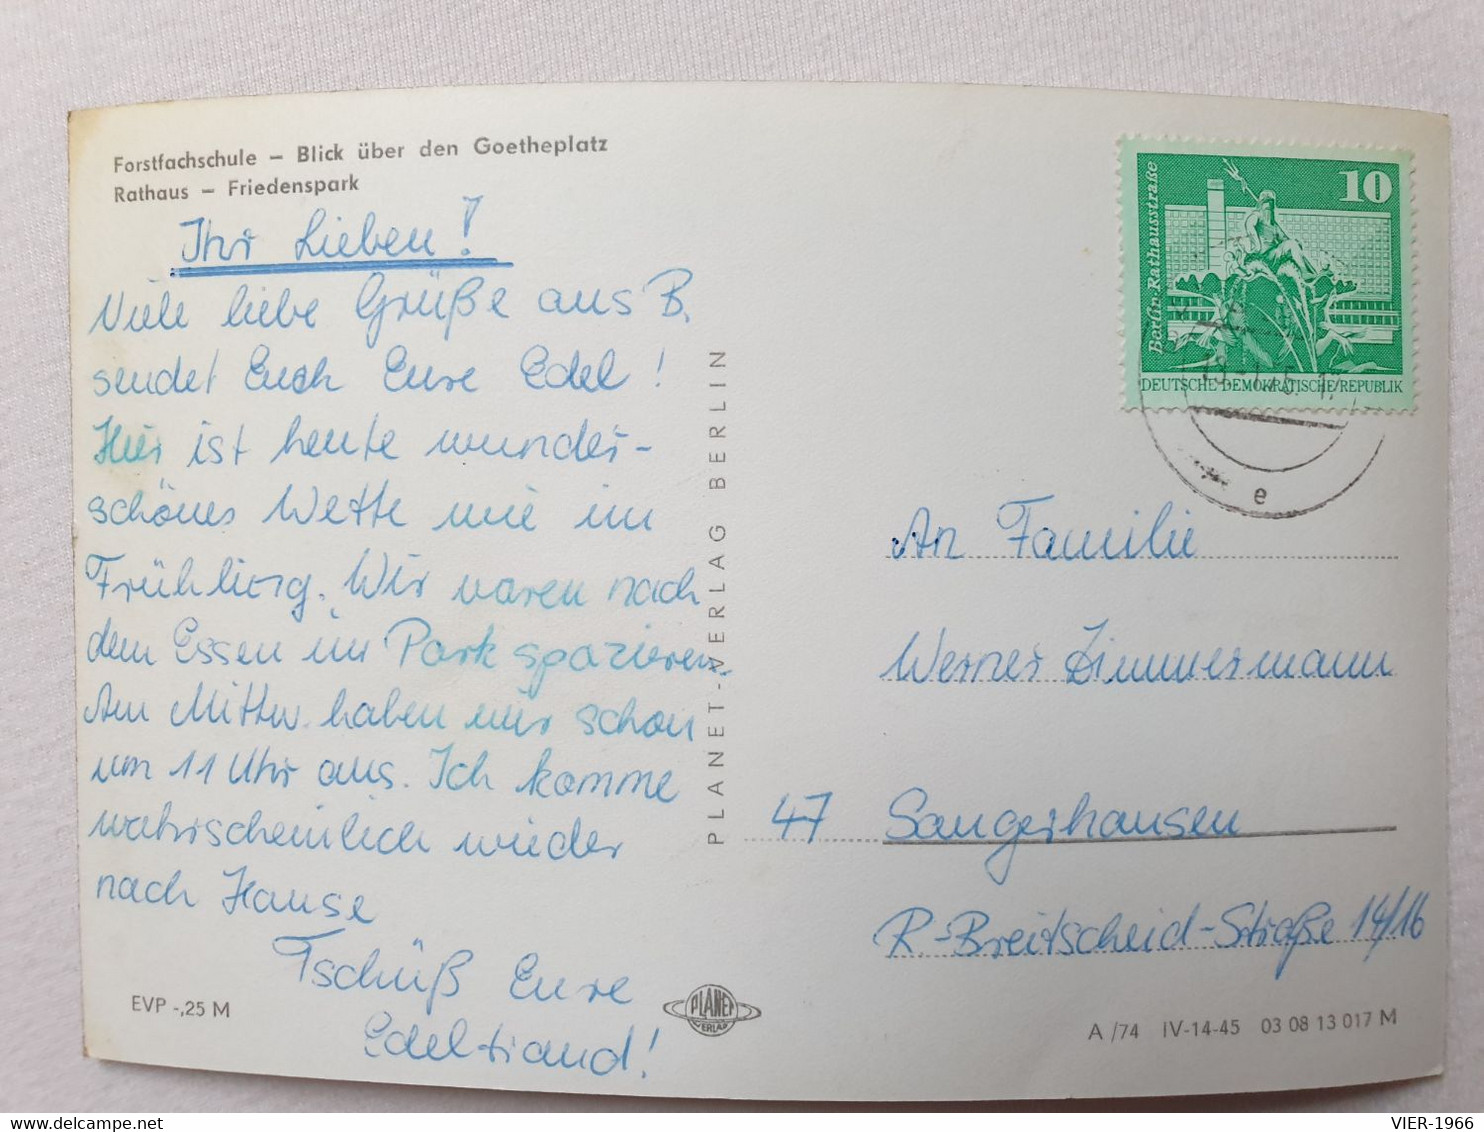 Forstfachschule – Blick über den Goetheplatz
Rathaus – Friedenspark
Ihr Lieben!
Viele liebe Grüße aus B.
sendet Euch Eure Edel!
Hier ist heute wunder-
schönes Wette wie im
Frühling. Wir waren nach
dem Essen im Park spazieren.
Am Mittw. haben wir schon
um 11 Uhr aus. Ich komme
wahrscheinlich wieder
nach Hause
Tschüß Eure
Edeltraud!
EVP -,25 M
PLANET-VERLAG BERLIN
PLANET
VERLAG
10
Berlin-Rathausstraße
DEUTSCHE DEMOKRATISCHE REPUBLIK
e
An Familie
Werner Zimmermann
47 Sangerhausen
R.-Breitscheid-Straße 14/16
A /74 IV-14-45 03 08 13 017 M
delcampe.net
VIER-1966